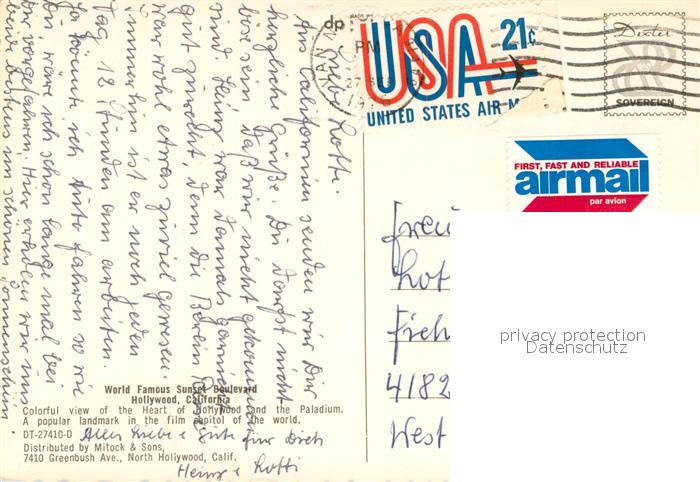 dp
USA 21c
UNITED STATES AIR M
PM
Dexter
SOVEREIGN
FIRST, FAST AND RELIABLE
airmail
par avion
Lotti.
Aus Californien senden wir Dir
herzliche Grüße. Du darfst nicht
böse sein, daß wir nicht gekommen
sind. Heinz war damals garnicht
gut zurecht, denn die
war wohl etwas zuviel gewesen.
Immerhin ist er noch jeden
Tag 12 Stunden am arbeiten.
Ja könnte ich Auto fahren so wie
Du, wär ich schon lange mal bei
Dir vorgefahren. Hier erholen wir uns
beide bestens im schönen Sonnenschein
Alles Liebe & Gute für Dich
Heinz & Lotti
Lott
4182
West
World Famous Sunset Boulevard
Hollywood, California
Colorful view of the Heart of Hollywood and the Paladium.
A popular landmark in the film capitol of the world.
DT-27410-D
Distributed by Mitock & Sons,
7410 Greenbush Ave., North Hollywood, Calif.
privacy protection
Datenschutz